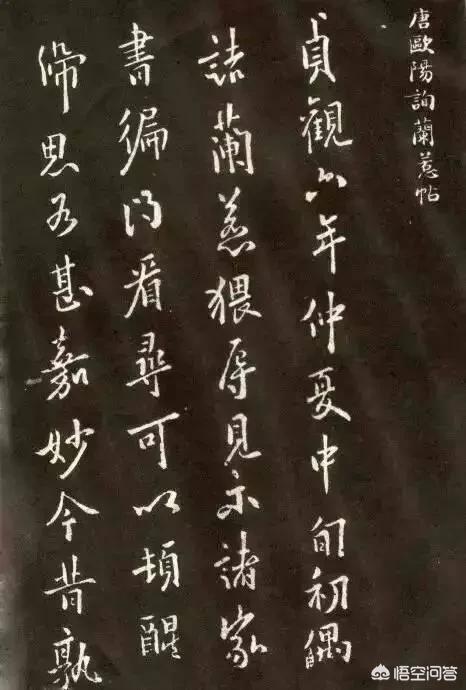 唐歐陽詢蘭惹帖
貞觀六年仲夏中旬初偶
詣蘭惹猥辱見示諸家
書徧得看尋可以頓醒
帰思為甚嘉妙今昔孰
悟空问答